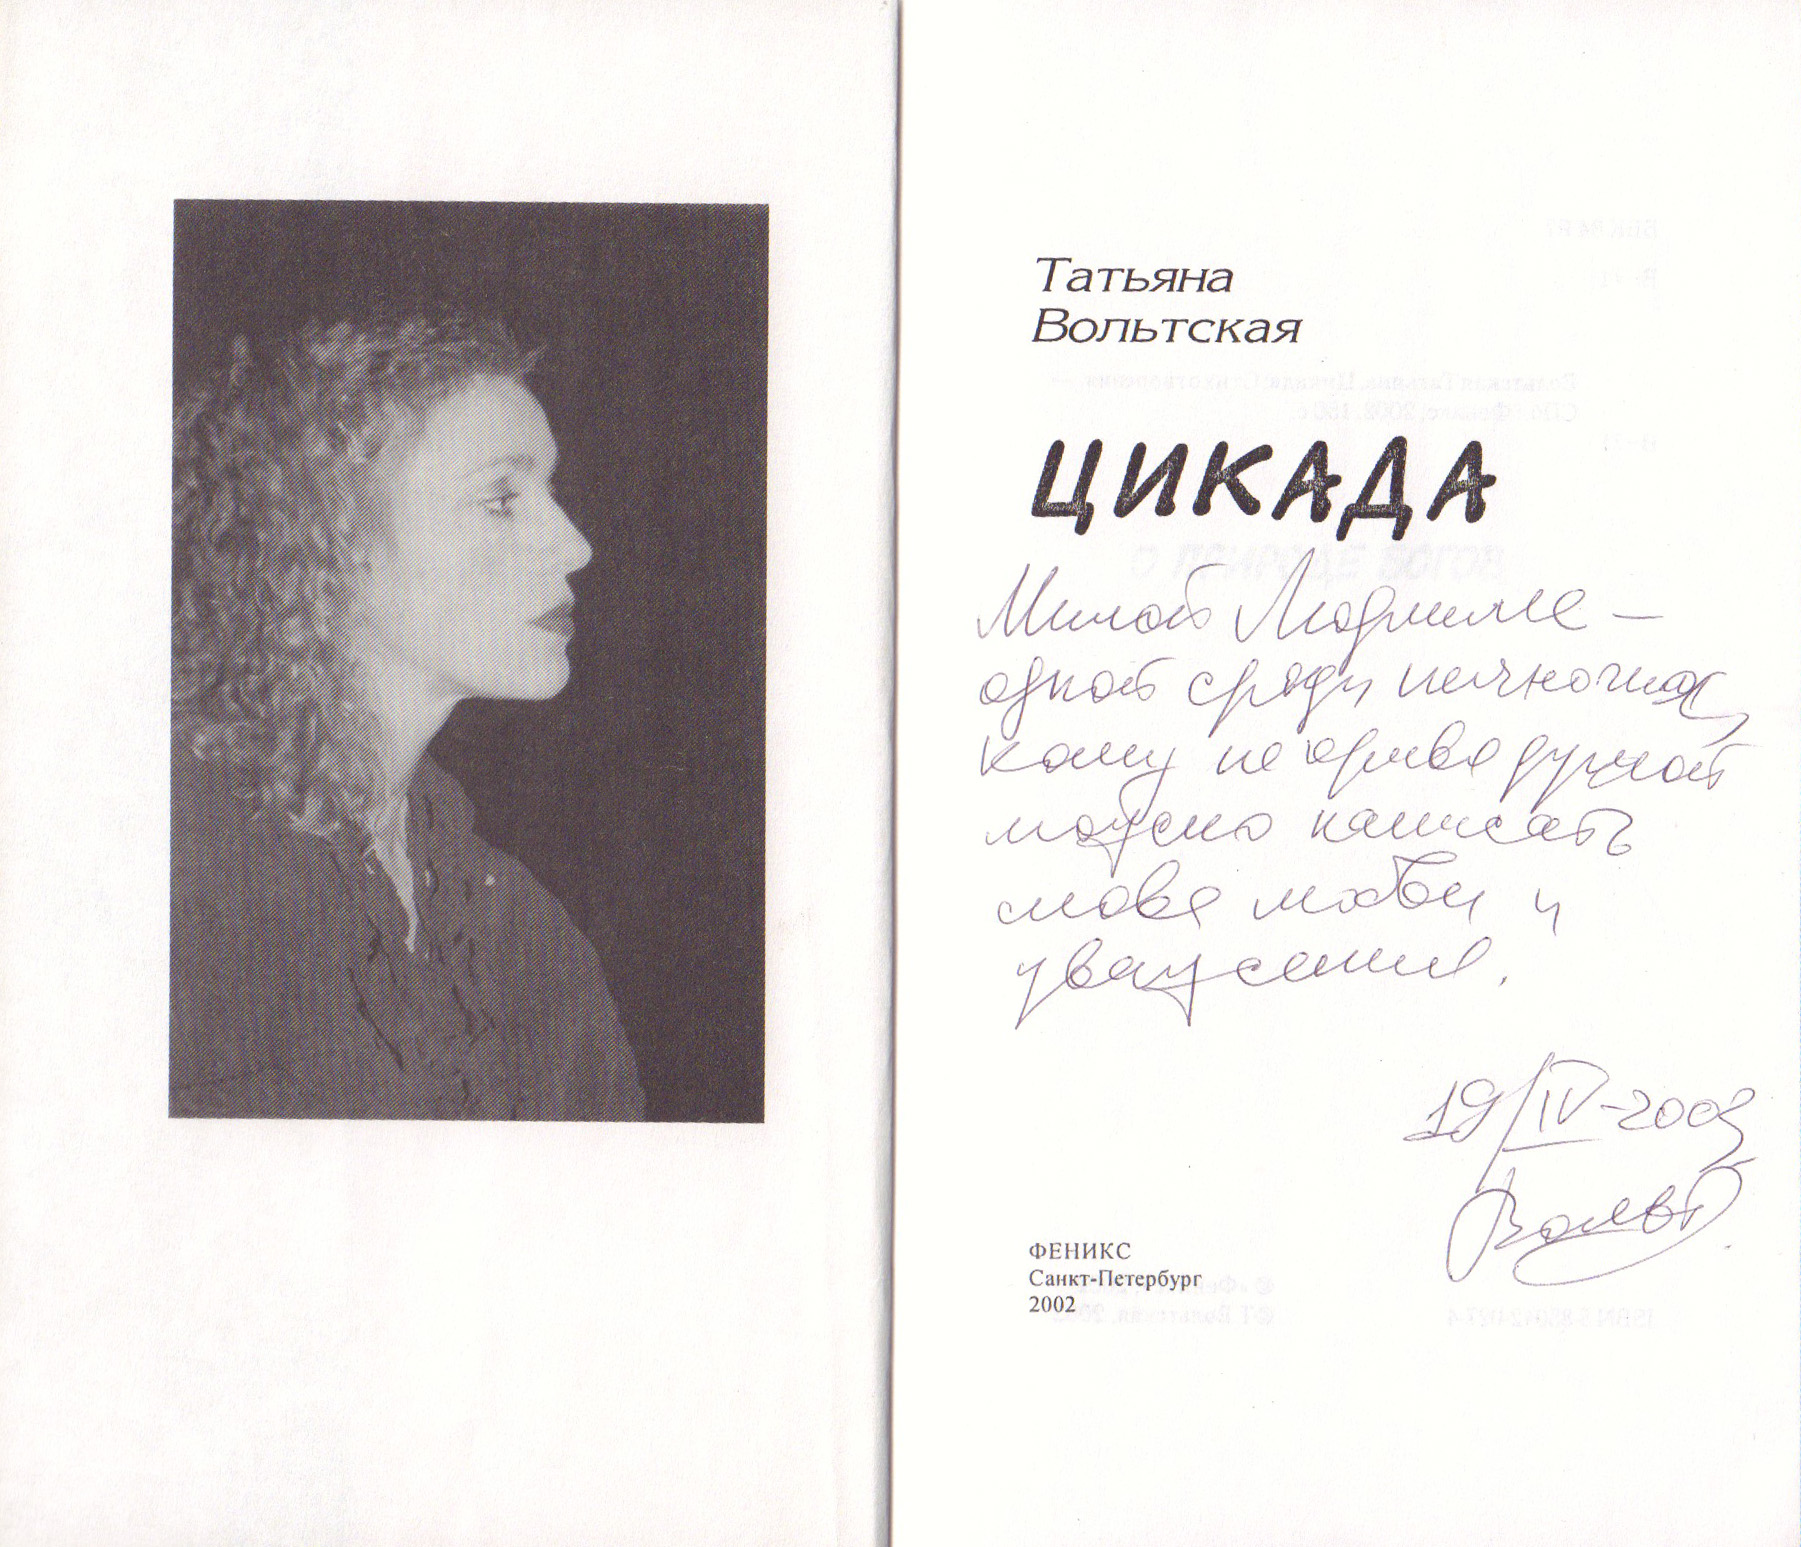 Татьяна
Вольтская
ЦИКАДА
Милой Людмиле –
одной среди немногих,
кому не кривя душой
можно написать
слова любви и
уважения.
19/IV-2003
Вольт
ФЕНИКС
Санкт-Петербург
2002